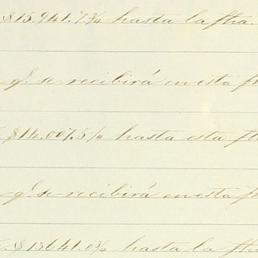 $15.941.7¾ hasta la fha.
qe. se recibirá en esta f
$14.007.5⅛ hasta esta f
qe. se recibirá en esta f
$13641.0¾ hasta la fha